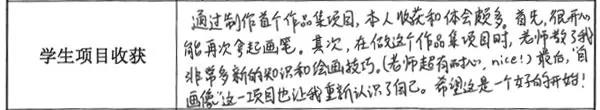 学生项目收获
通过制作首个作品集项目,本人收获和体会颇多。首先,很开心
能再次拿起画笔。其次,在做这个作品集项目时,老师教了我
非常多新的知识和绘画技巧。(老师超有耐心,nice!)最后,“自
画像”这一项目也让我重新认识了自己。希望这是一个好的开始!